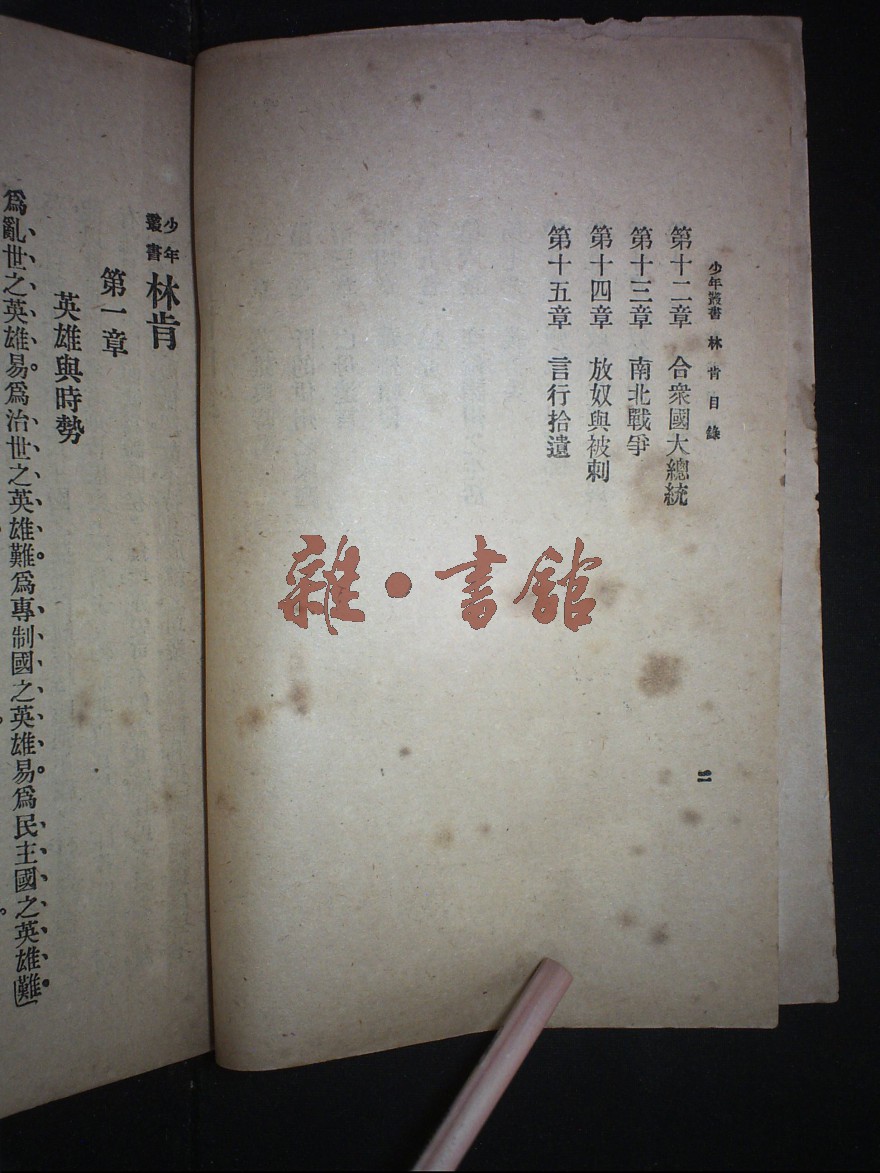 少年叢書 林肯目錄
第十二章 合衆國大總統
第十三章 南北戰爭
第十四章 放奴與被刺
第十五章 言行拾遺
二
雜·書館
少年叢書 林肯
第一章
英雄與時勢
爲亂世之英雄易。爲治世之英雄難。爲專制國之英雄易。爲民主國之英雄難」